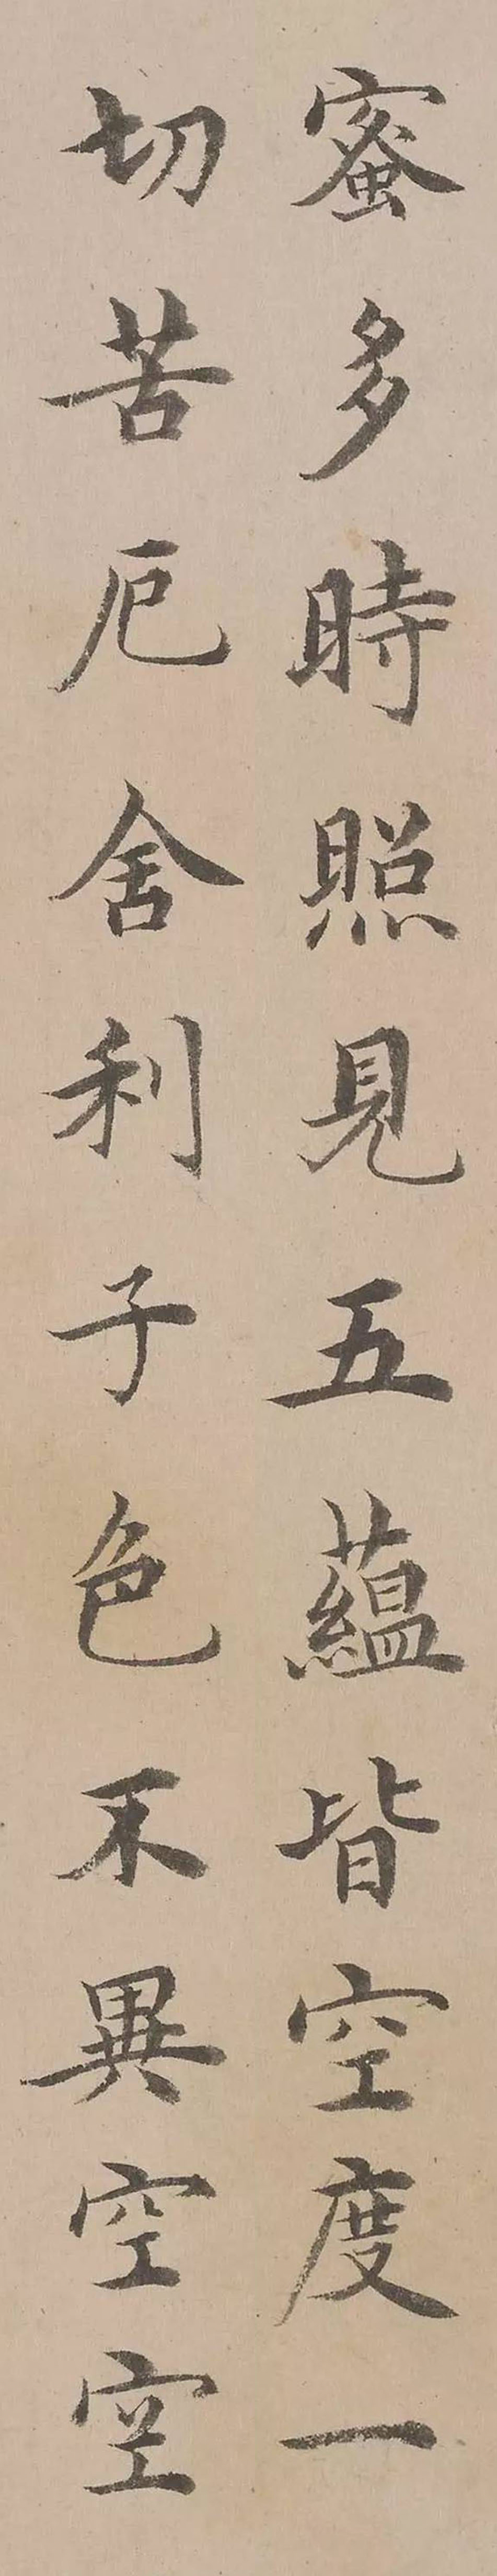 蜜多時照見五蘊皆空度一
切苦厄舍利子色不異空空